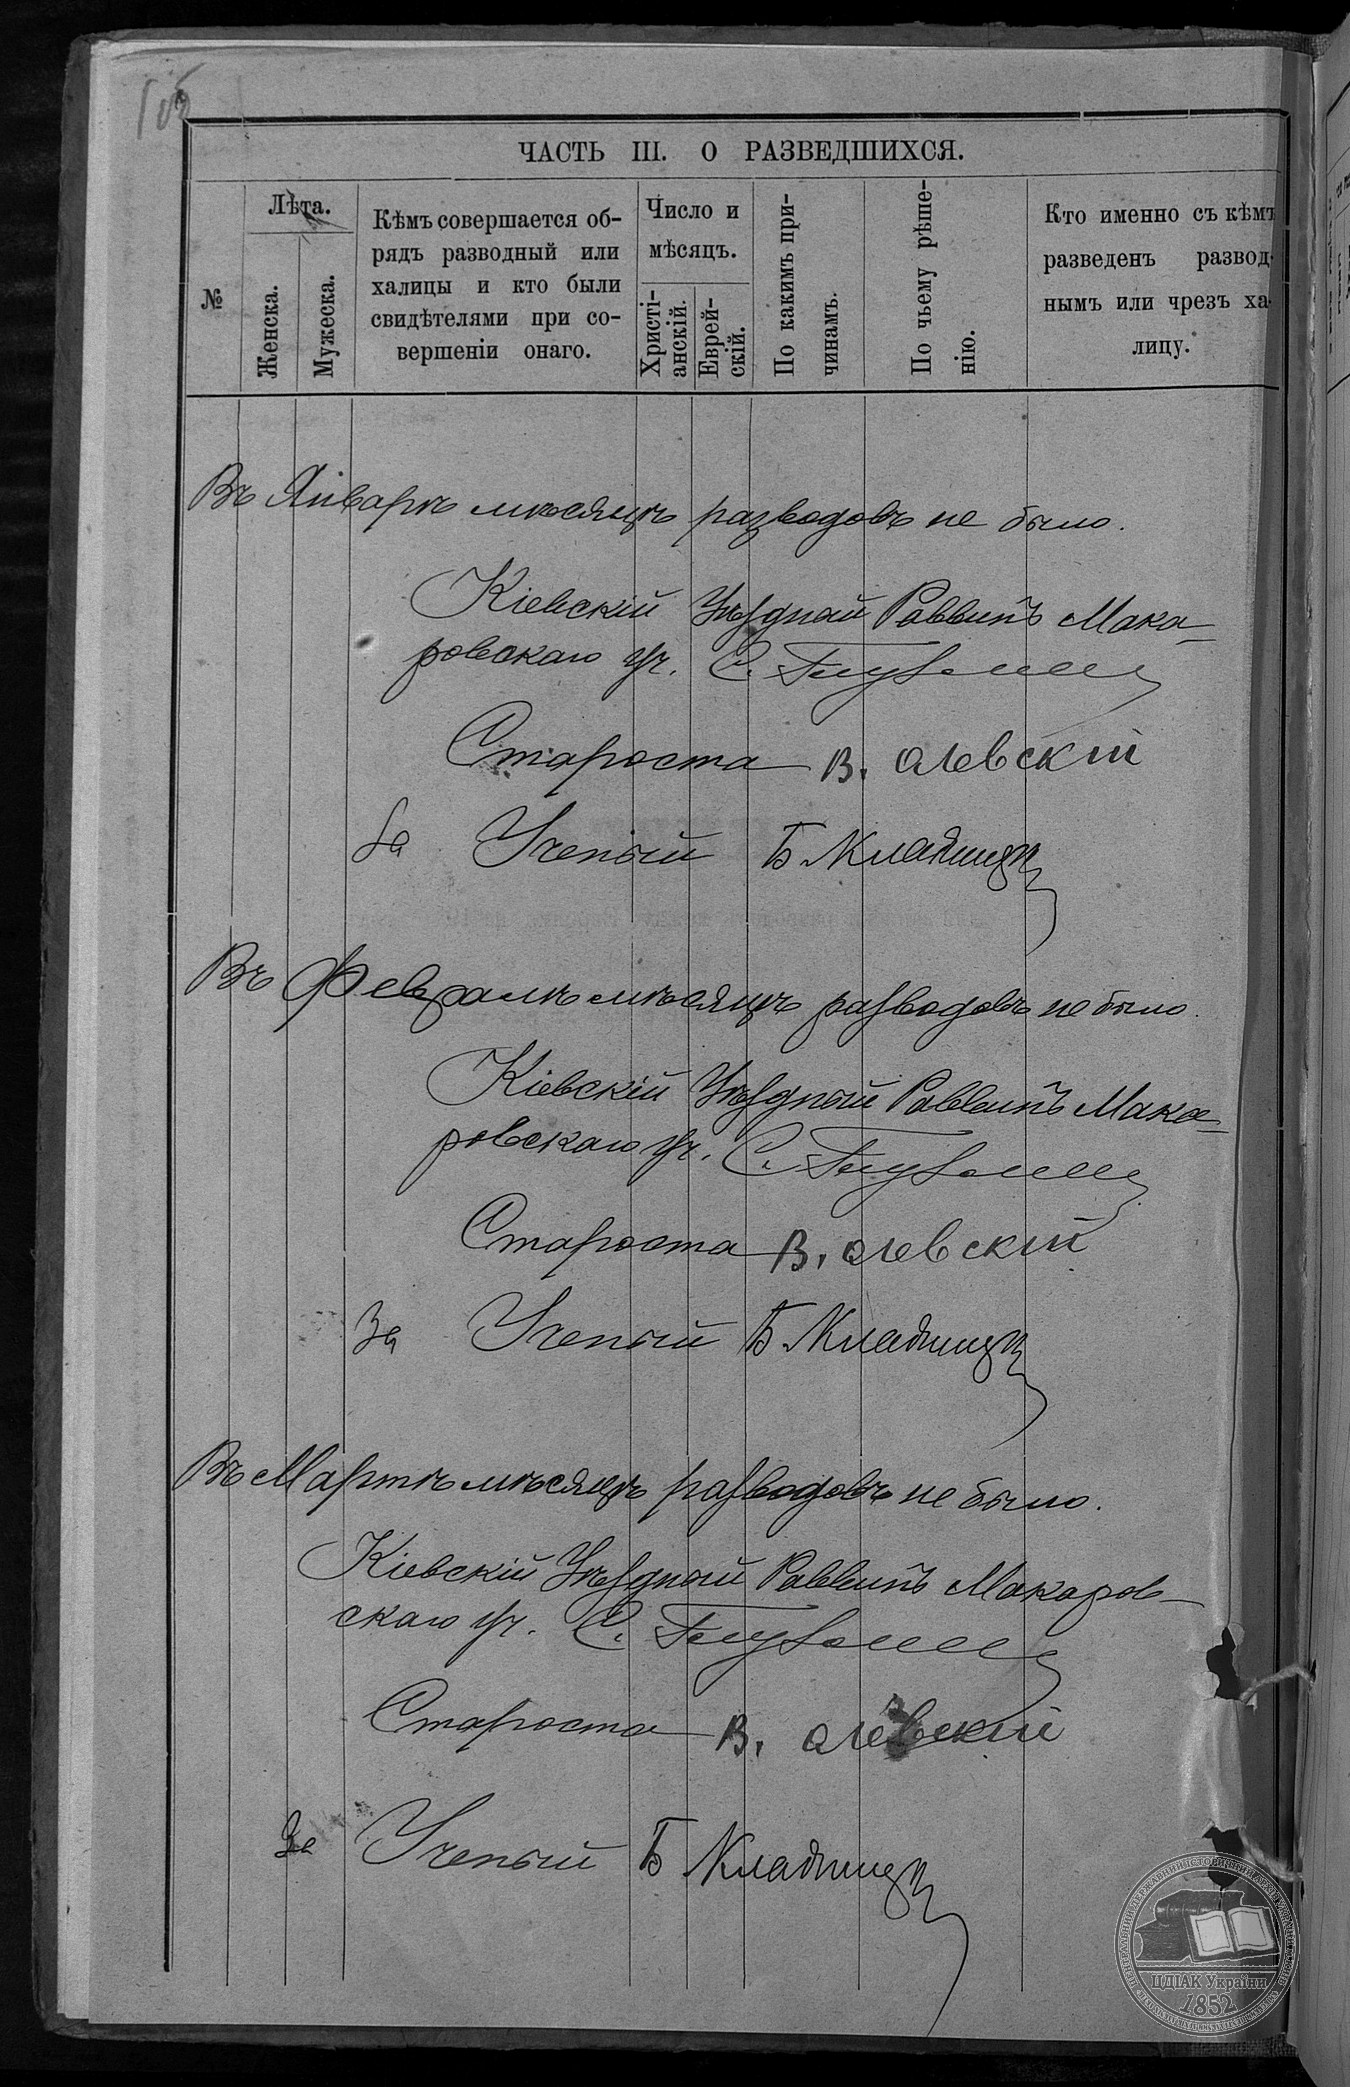 ЧАСТЬ III. О РАЗВЕДШИХСЯ.
№
Лѣта.
Женска.
Мужеска.
Кѣмъ совершается об-
рядъ разводный или
халицы и кто были
свидѣтелями при со-
вершеніи онаго.
Число и
мѣсяцъ.
Христі-
анскій.
Еврей-
скій.
По какимъ при-
чинамъ.
По чьему рѣше-
нію.
Кто именно съ кѣмъ
разведенъ развод-
нымъ или чрезъ ха-
лицу.
Въ Январѣ мѣсяцѣ разводовъ не было.
Кіевскій Уѣздный Раввинъ Мака-
ровскаго уч. С.
Староста В. Олевскій
За Ученый Б Кладницкі
Въ Февралѣ мѣсяцѣ разводовъ не было.
Кіевскій Уѣздный Раввинъ Мака-
ровскаго уч. С.
Староста В. Олевскій
За Ученый Б Кладницкі
Въ Мартѣ мѣсяцѣ разводовъ не было.
Кіевскій Уѣздный Раввинъ Макаров-
скаго уч. С.
Староста В. Олевскій
За Ученый Б Кладницкі
ЦДІАК України
1852